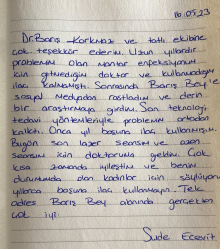 16.05.23
Dr. Barış Korkmaz ve tatlı ekibine
çok teşekkür ederim. Uzun yıllardır
problemim olan mantar enfeksiyonum
için gitmediğim doktor ve kullanmadığım
ilaç kalmamıştı. Sonrasında Barış Bey'e
sosyal medyadan rastladım ve derin
bir araştırmaya girdim. Son teknoloji
tedavi yöntemleriyle problemim ortadan
kalktı. Onca yıl boşuna ilaç kullanmışım.
Bugün son lazer seansım ve ozon
seansım için doktoruma geldim. Çok
kısa zamanda iyileştim ve benim
durumumda olan kadınlar için söylüyorum
yıllarca boşuna ilaç kullanmayın. Tek
adres Barış Bey alanında gerçekten
çok iyi.
Sude Ecevit